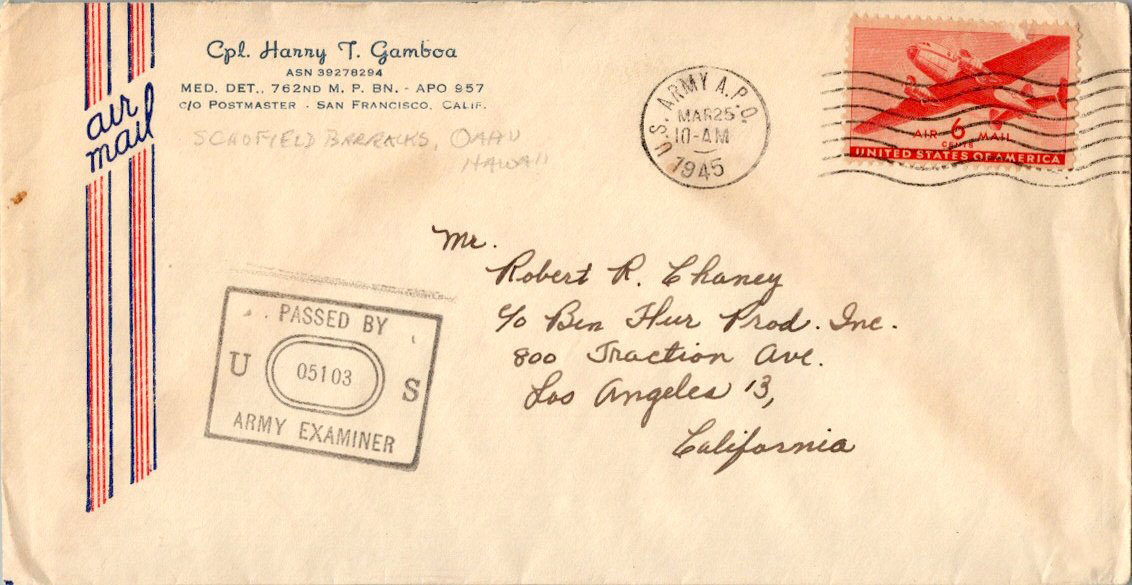 air
mail
Cpl. Harry T. Gamboa
ASN 39278294
MED. DET., 762ND M. P. BN. - APO 957
C/O POSTMASTER - SAN FRANCISCO, CALIF.
SCHOFIELD BARRACKS, OAHU
HAWAII
U.S. ARMY A.P.O.
MAR 25
10-AM
1945
AIR 6 MAIL
CENTS
UNITED STATES OF AMERICA
Mr.
Robert R. Chaney
c/o Ben Hur Prod. Inc.
800 Traction Ave.
Los Angeles 13,
California
PASSED BY
U 05103 S
ARMY EXAMINER